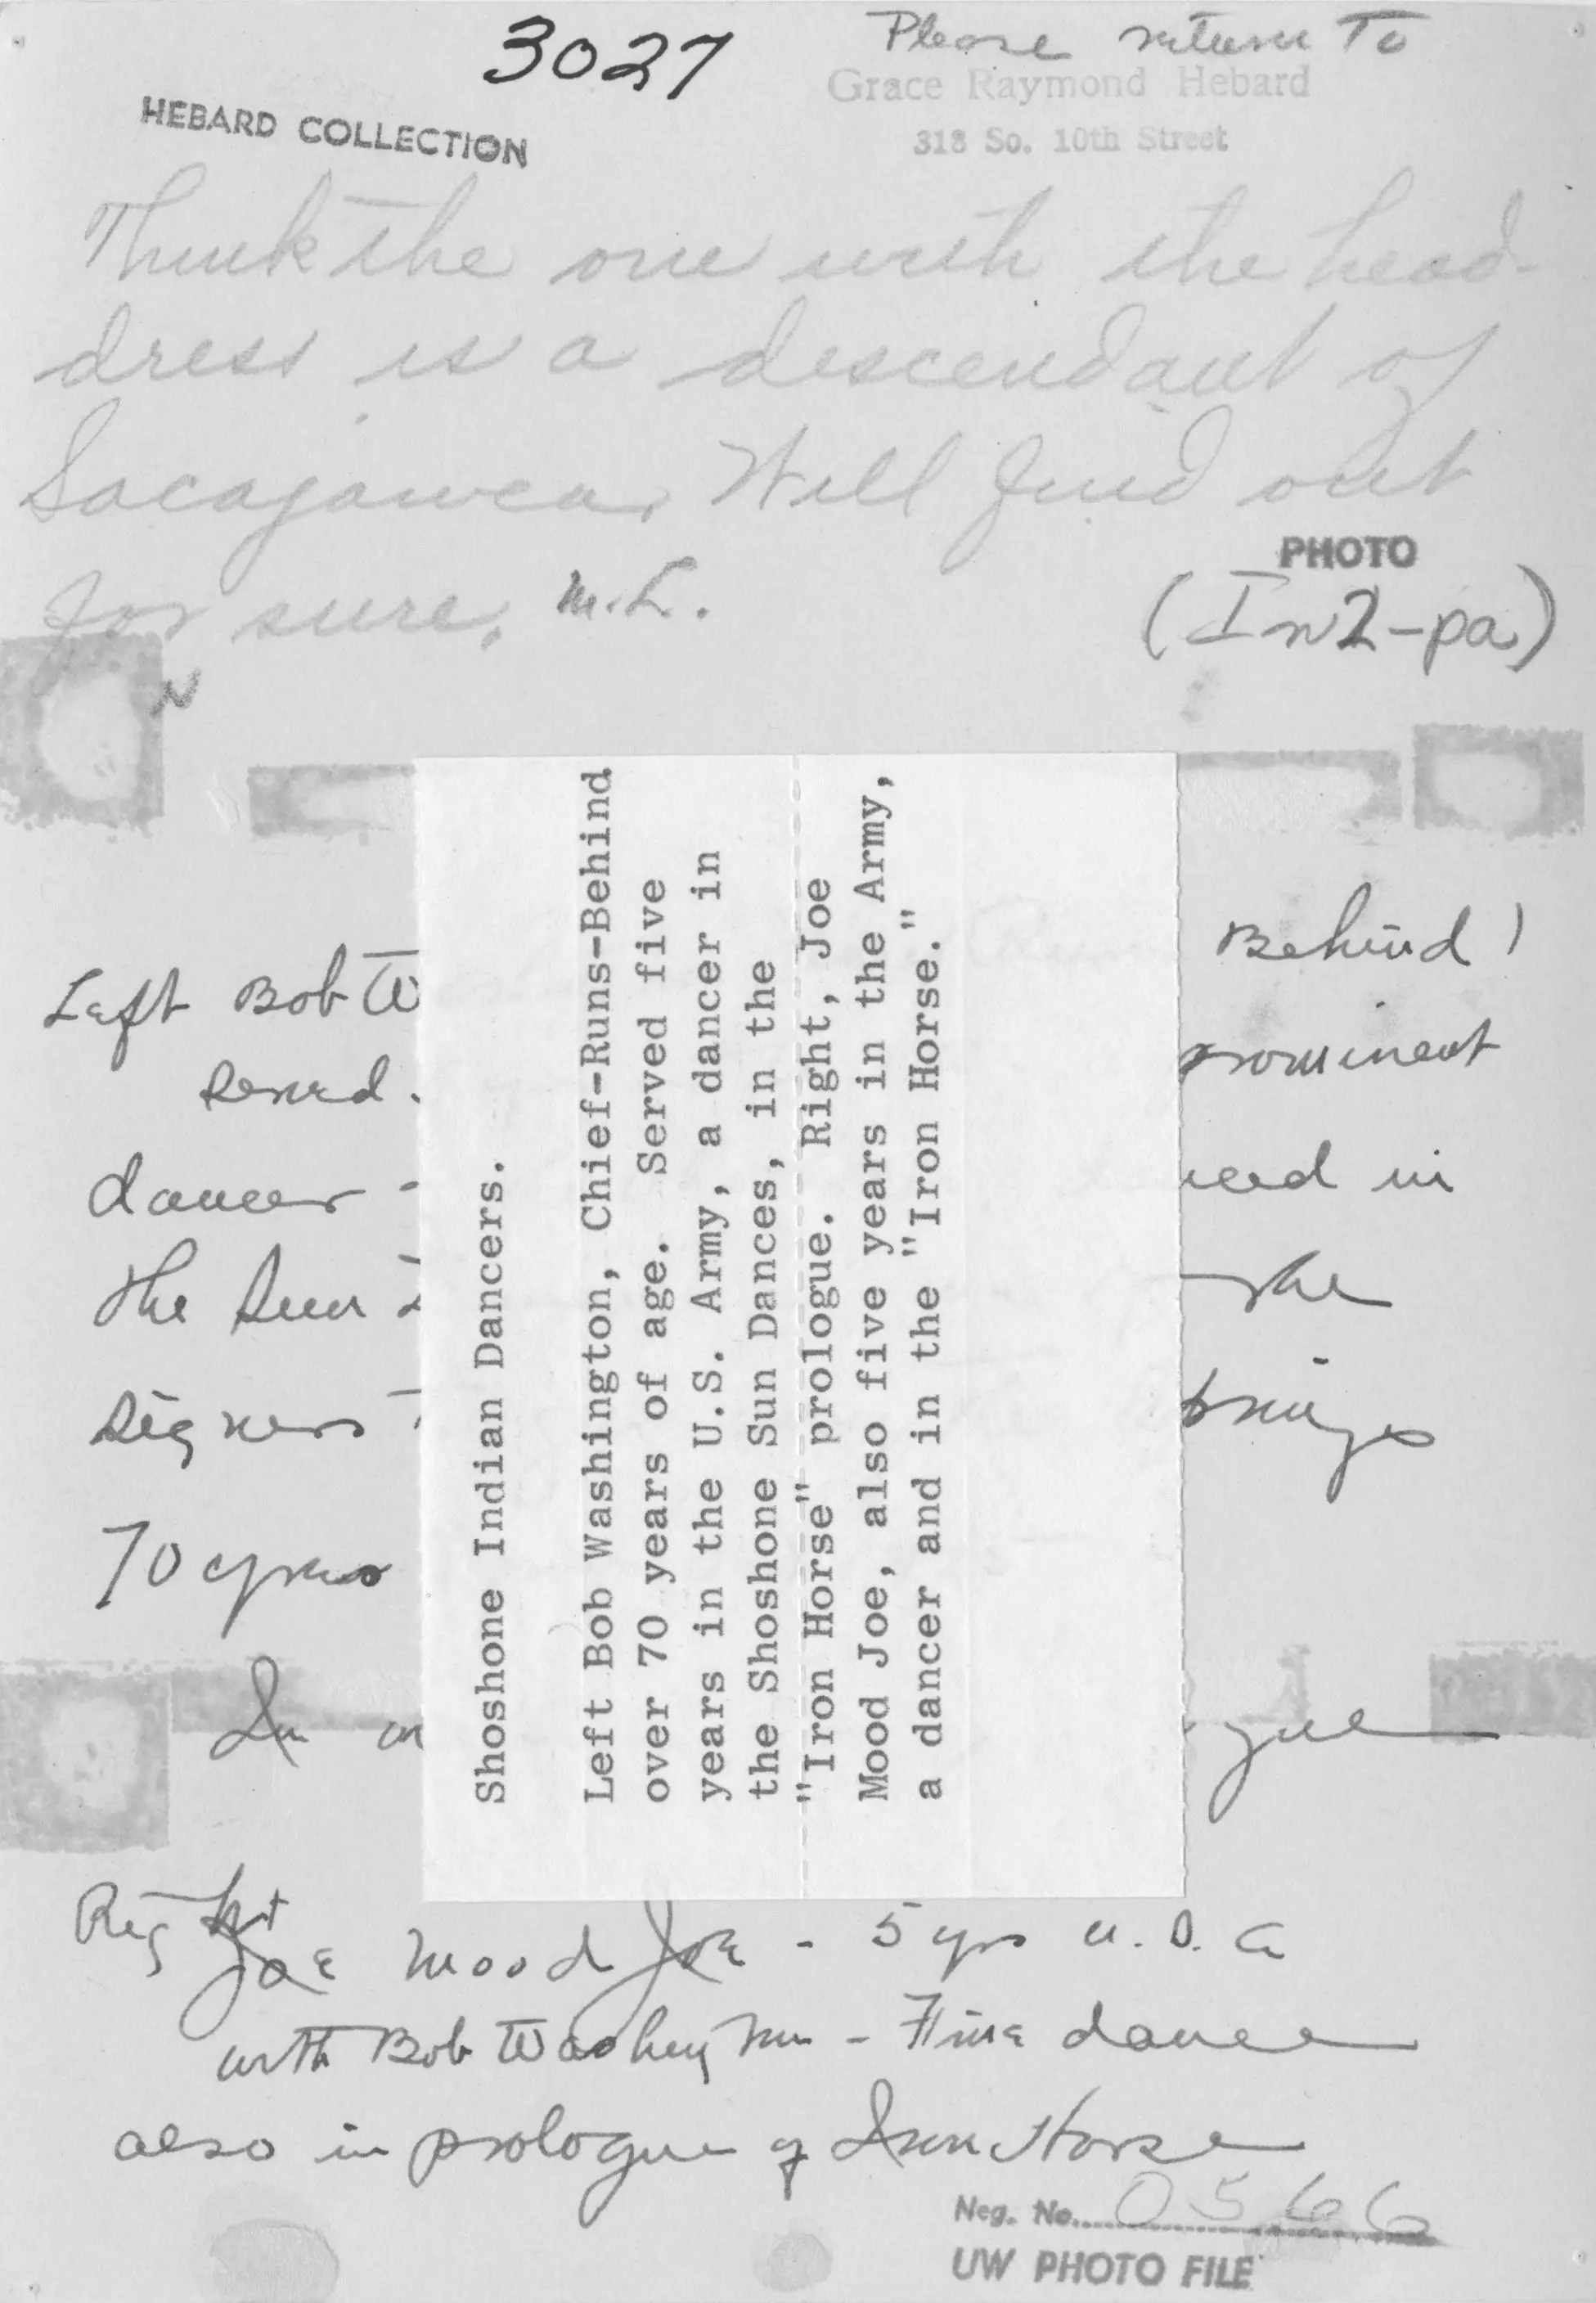 3027
Please return To
HEBARD COLLECTION
Grace Raymond Hebard
318 So. 10th Street
Think the one with the head-
dress is a descendant of
Sacajawea. Will find out
for sure. M.L.
PHOTO
(In2-pa)
N
Shoshone Indian Dancers.
Left Bob Washington, Chief-Runs-Behind
over 70 years of age. Served five
years in the U.S. Army, a dancer in
the Shoshone Sun Dances, in the
"Iron Horse" prologue. Right, Joe
Mood Joe, also five years in the Army,
a dancer and in the "Iron Horse."
Left Bob W Behind
served. prominent
dancer - in
the Sun the
Signers
70 years
In gue
Right
Joe Mood Joe - 5 yrs U.S.A
with Bob Washington - Fine dance
also in prologue of Iron Horse
Neg. No. 0566
UW PHOTO FILE